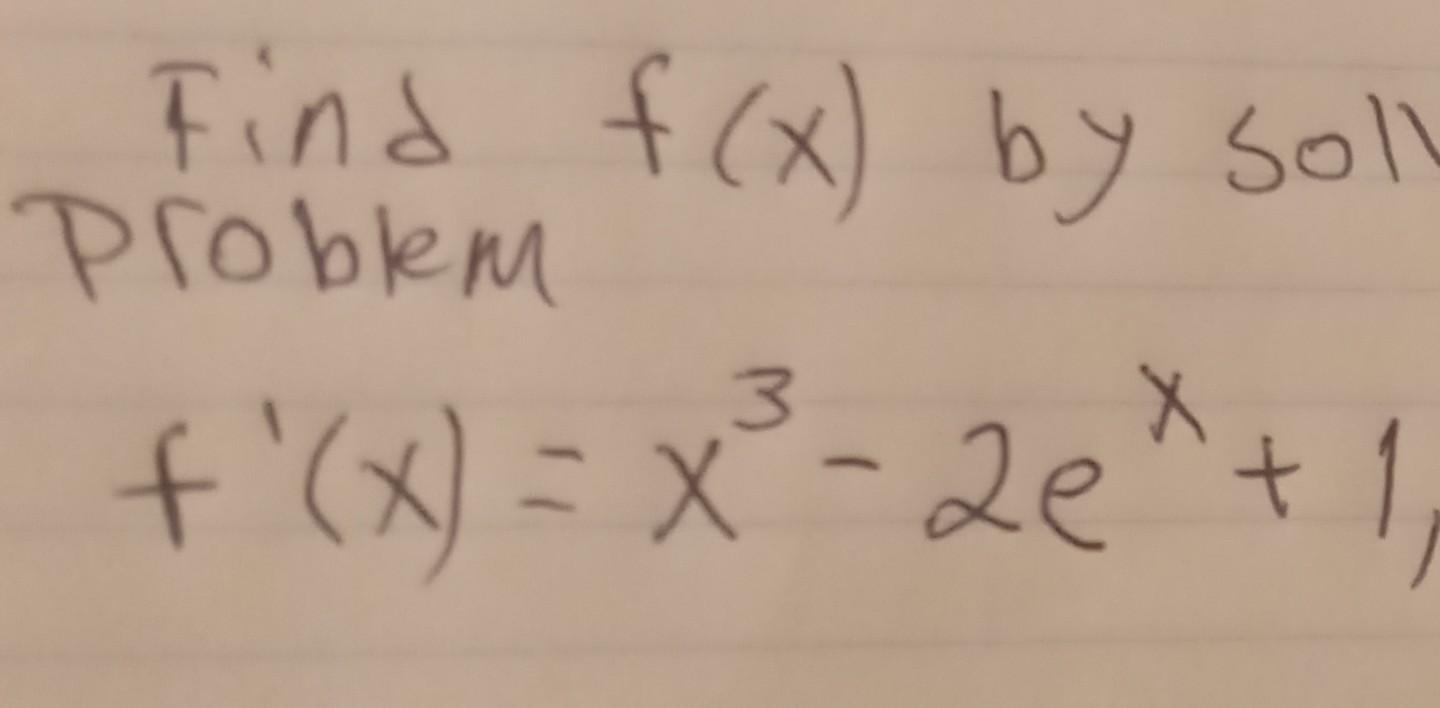 Find f(x) by
Problem
f'(x) = x³ - 2eˣ + 1,